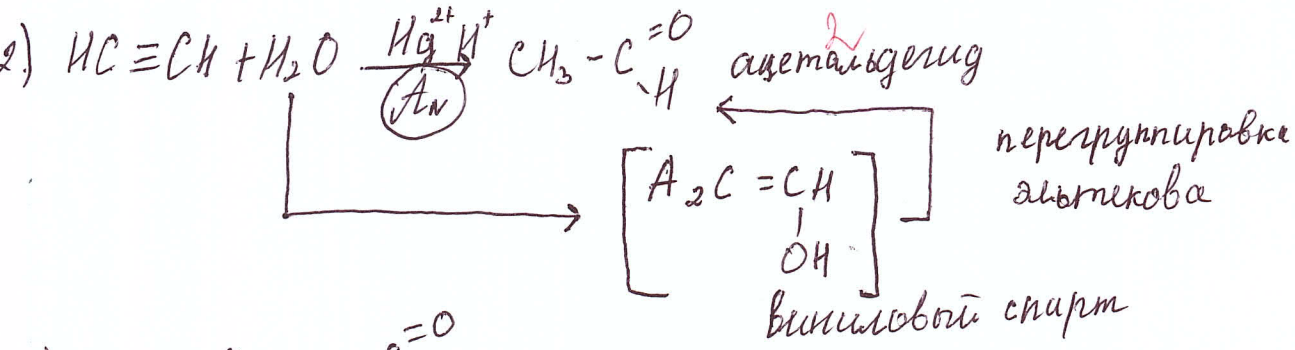 2) HC≡CH + H₂O Hg²⁺ H⁺ CH₃ - C =O ацетальдегид
Aɴ H
2
перегруппировка
эльтекова
A₂C = CH
OH
виниловый спирт
=O